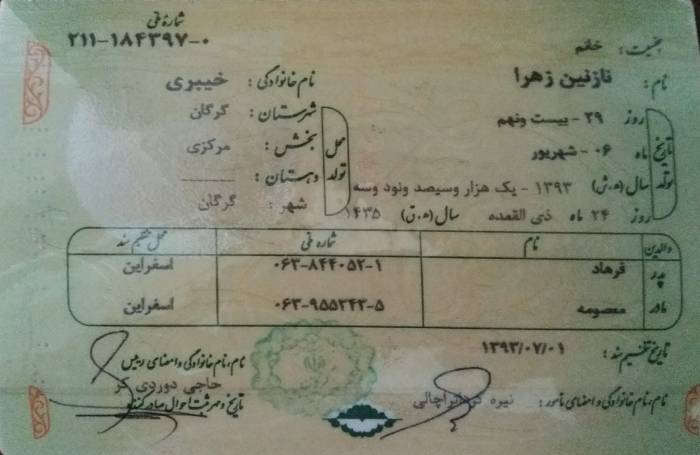 شماره ملی
۲۱۱-۱۸۴۳۹۷-۰
جنسیت : خانم
نام : نازنین زهرا
نام خانوادگی : خیبری
تاریخ تولد
روز ۲۹ - بیست ونهم
ماه ۰۶ - شهریور
سال (ه.ش) ۱۳۹۳ - یک هزار وسیصد ونود وسه
روز ۲۴ ماه ذی القعده سال (ه.ق) ۱۴۳۵
محل تولد
شهرستان : گرگان
بخش : مرکزی
دهستان :
شهر : گرگان
والدین نام شماره ملی محل تنظیم سند
پدر فرهاد ۰۶۳-۸۴۴۰۵۲-۱ اسفراین
مادر معصومه ۰۶۳-۹۵۵۲۴۳-۵ اسفراین
تاریخ تنظیم سند : ۱۳۹۳/۰۷/۰۱
نام، نام خانوادگی و امضای مامور : نیره
نام، نام خانوادگی و امضای رییس
حاجی دوردی کر
تاریخ و مهر ثبت احوال صادرکننده